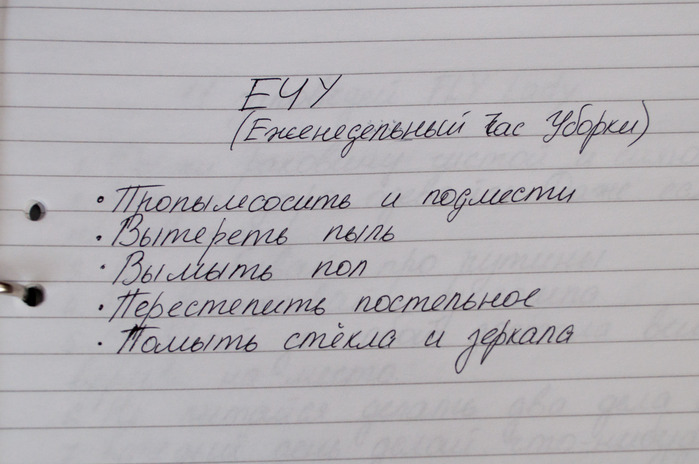 ЕЧУ
(Еженедельный Час Уборки)
• Пропылесосить и подмести
• Вытереть пыль
• Вымыть пол
• Перестелить постельное
• Помыть стёкла и зеркала